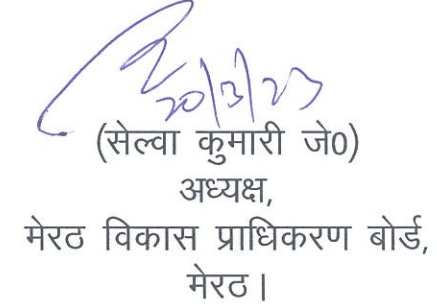 20/3/23
(सेल्वा कुमारी जे0)
अध्यक्ष,
मेरठ विकास प्राधिकरण बोर्ड,
मेरठ।